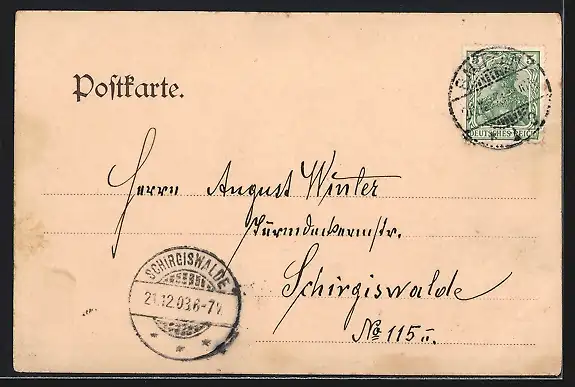 Postkarte.
DEUTSCHES REICH
Herrn August Winter
Schirgiswalde
No 115
SCHIRGISWALDE
21.12.03 6-7N